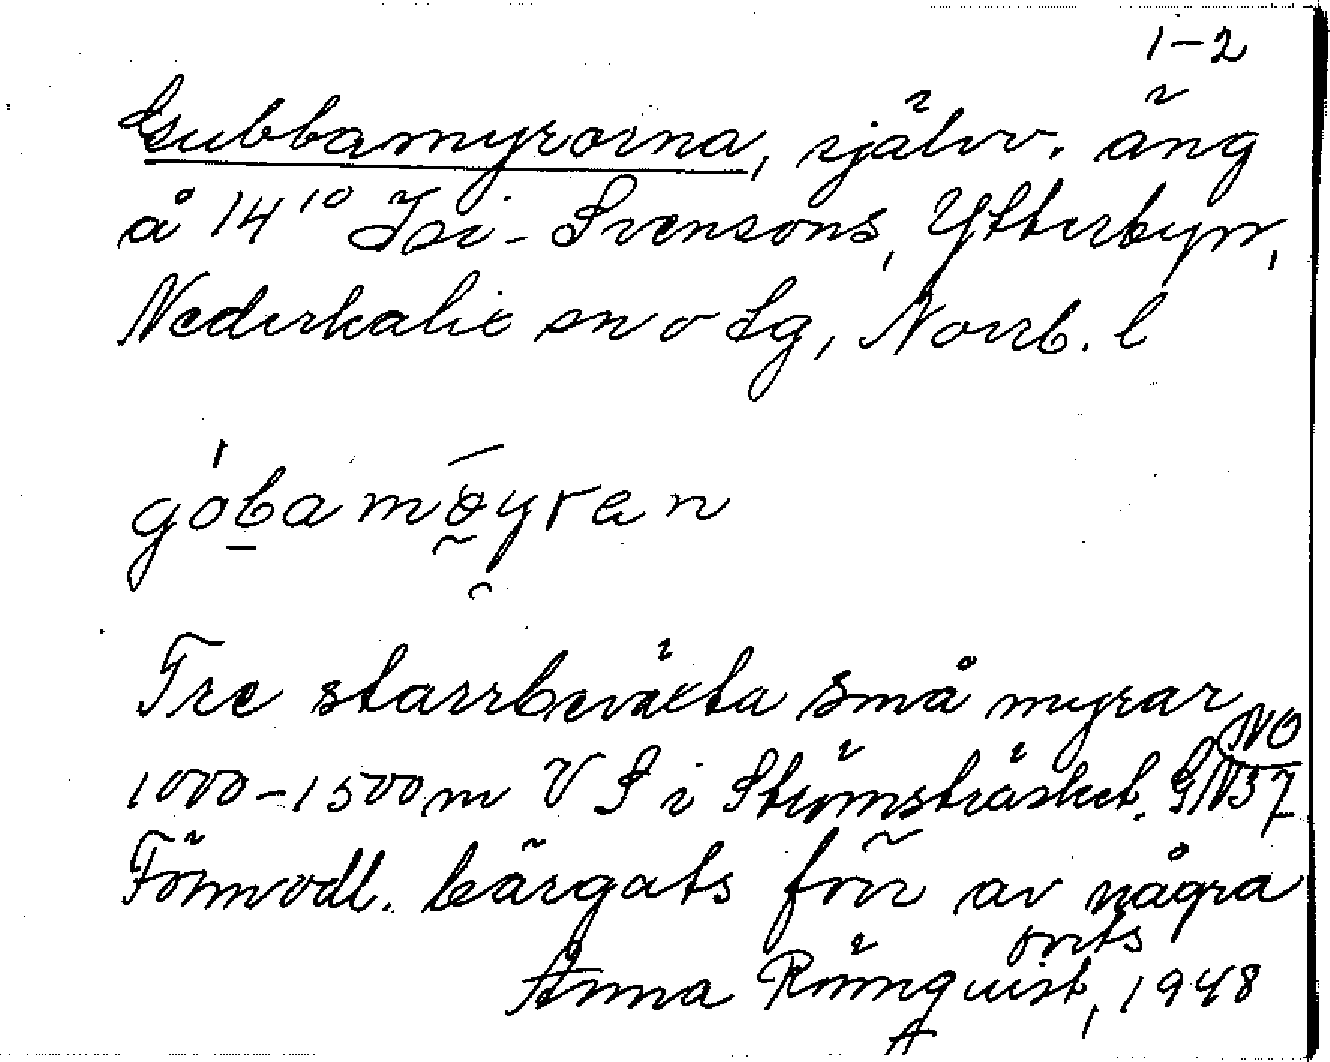 1-2
Gubbamyrorna, självv. äng
å 14¹⁰ Isi-Svensons, Ytterbyn,
Nederkalix sn o Lg, Norrb. l
góbamøyran
Tre starrbeväxta små myrar
1000-1500m V S i Strömsträsket.
NO
Förmodl. bärgats förr av några
Anna Rönnquist, 1948